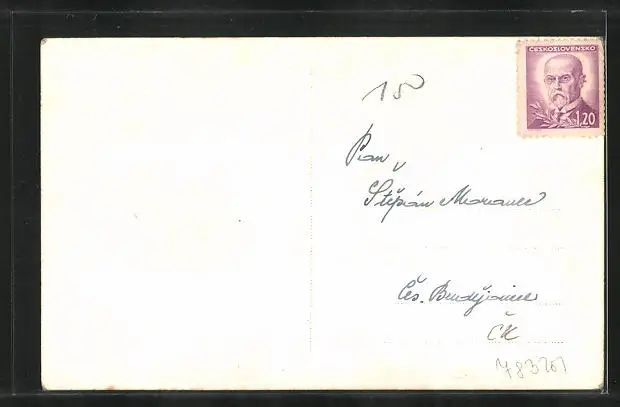 ČESKOSLOVENSKO
1,20
15
Pan
Štěpán Moravec
Čes. Budějovice
ČK
783201